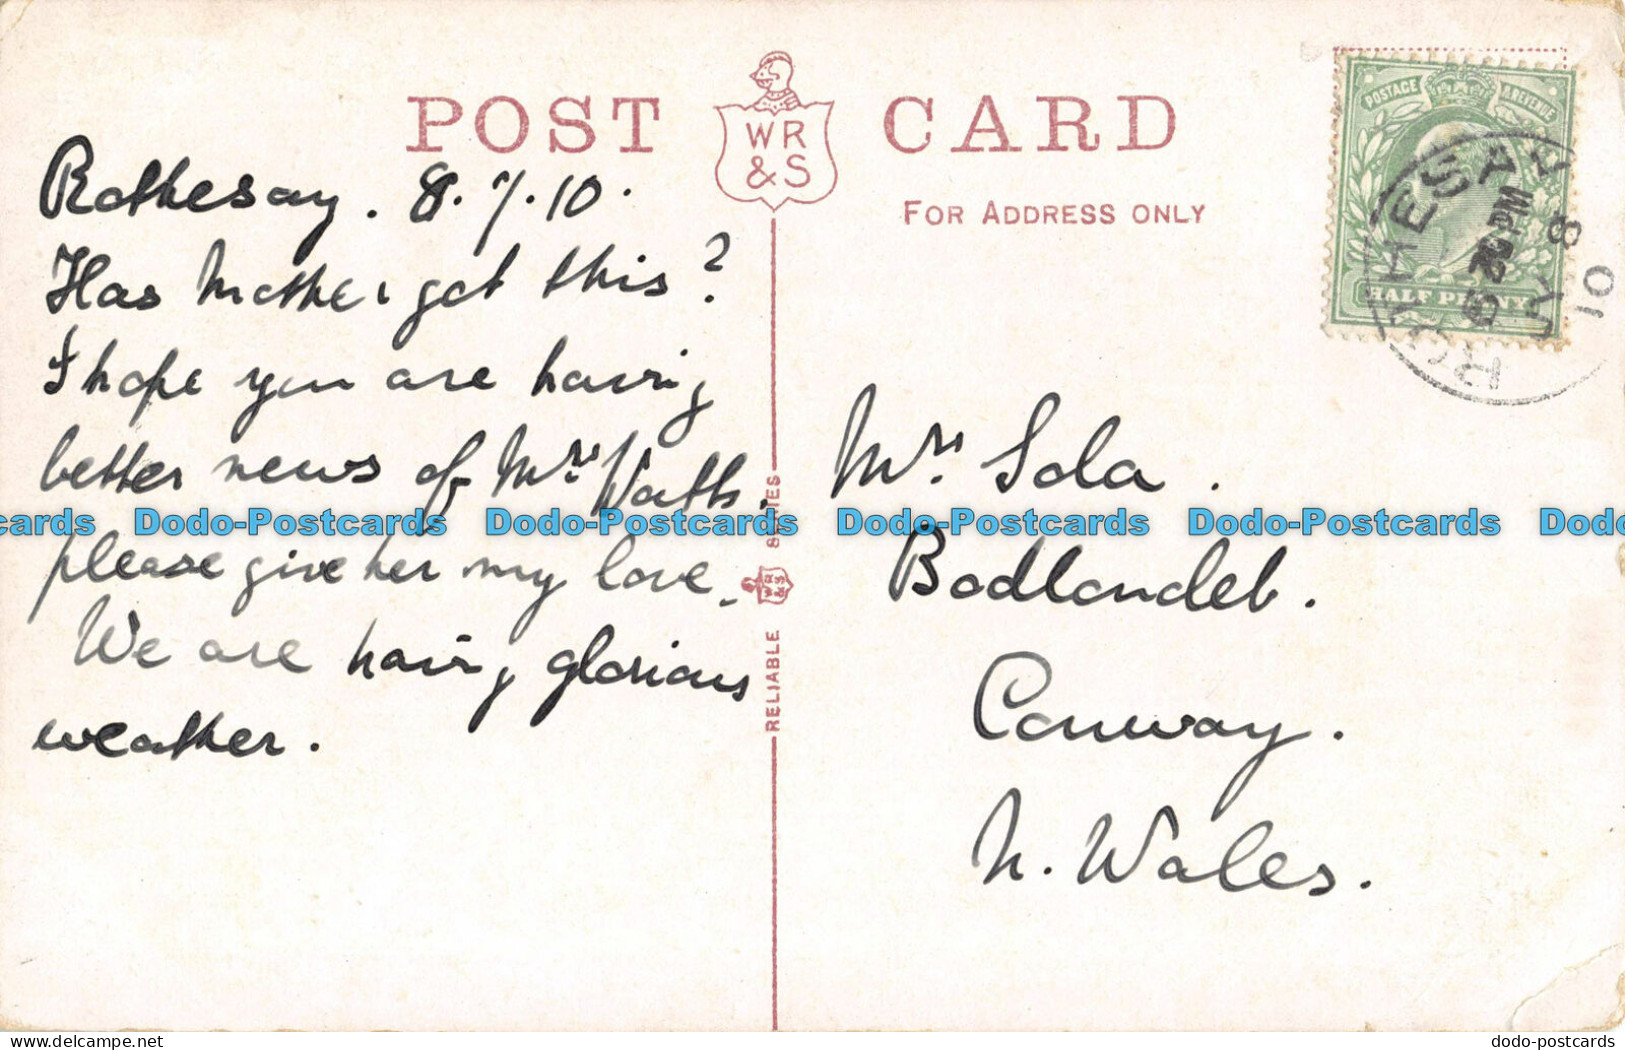 POST CARD
WR
&S
FOR ADDRESS ONLY
POSTAGE & REVENUE
HALF PENNY
ROTHESAY
6 20 PM
JY 8
10
Rothesay. 8.7.10.
Has Mother got this?
I hope you are having
better news of Mrs Watts.
please give her my love.
We are having glorious
weather.
RELIABLE WR&S SERIES
Mrs. Sola.
Bodlondeb.
Conway.
N. Wales.
Dodo-Postcards Dodo-Postcards Dodo-Postcards Dodo-Postcards
dodo-postcards.com
dodo-postcards